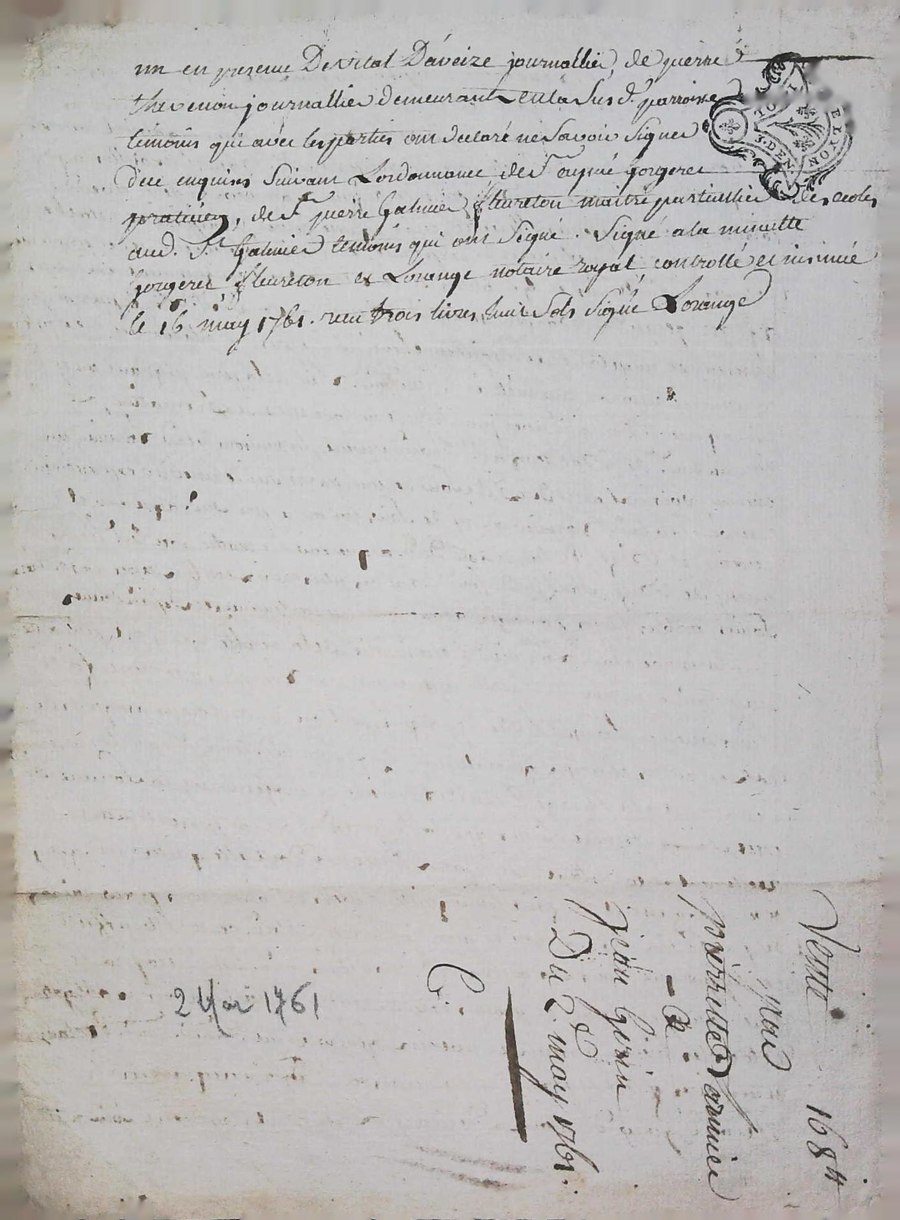 un en presence De vital Daveize journallié de pierre
thevenon journallié demeurant en la Susd. parroisse
temoins qui avec les parties ont declaré ne Savoir Signer
de ce enquises Suivant Lordonnance de Sr aimé gorgeret
praticien, de Sr pierre Galmier fleureton maitre particulier des ecoles
aud. St. Galmier temoins qui ont Signé. Signé a la minutte
gorgeret fleureton et Lorange notaire royal controllé et insinué
le 16 may 1761. reçu trois livres huit Sols Signé Lorange
LYON
3. DEN.
Vente 168
par
pierre Varinier
- a -
jean Girin
Du 2. may 1761.
2 Mai 1761